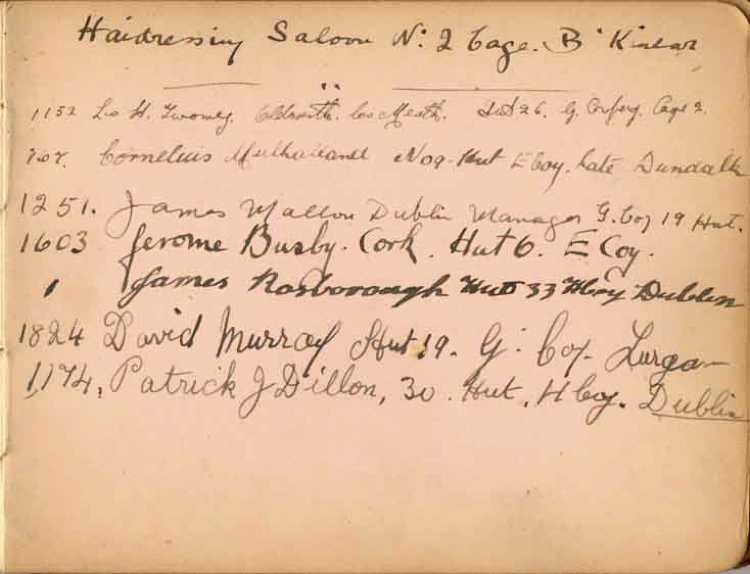 Hairdressing Saloon No: 2 Cage. B'Kinlar
1152 Leo H. Twomey. Oldcastle. Co Meath. Hut 26. G. Company. Cage 2.
707. Cornelius Mulholland No 9. Hut E Coy. late Dundalk
1251. James Mallon Dublin Manager G. Coy 19 Hut.
1603 Jerome Busby. Cork. Hut 6. E Coy.
1 James Rosborough Hut 33 H Coy Dublin
1824 David Murray Hut 19. G. Coy. Lurgan
1174, Patrick J Dillon, 30. Hut, H Coy. Dublin